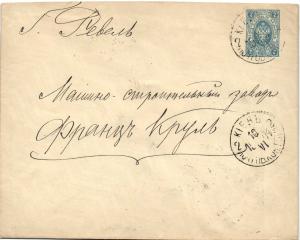 Г. Ревель
Машино-строительный заводъ
Францъ Круль
КІЕВЪ